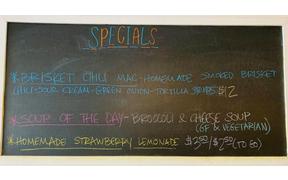 SPECIALS
*BRISKET CHILI MAC-HOMEMADE SMOKED BRISKET
CHILI-SOUR CREAM-GREEN ONION-TORTILLA STRIPS $12
*SOUP OF THE DAY-BROCCOLI & CHEESE SOUP
(GF & VEGETARIAN)
*HOMEMADE STRAWBERRY LEMONADE $2.50/$7.50 (TO GO)